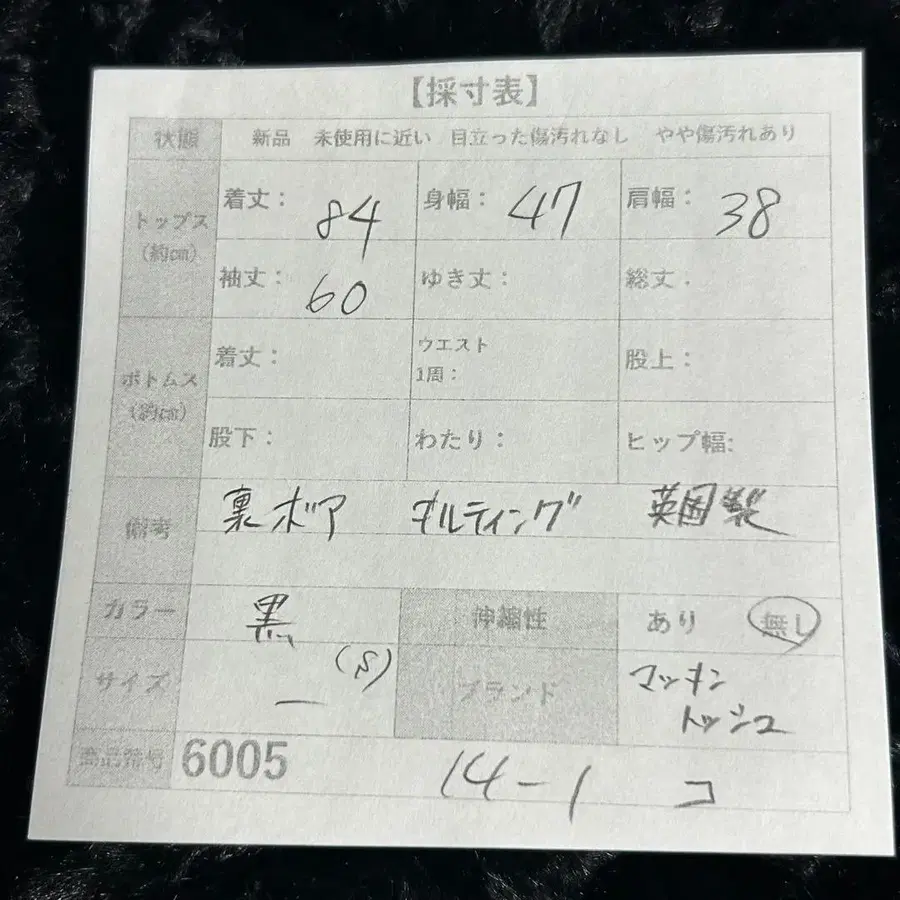 【採寸表】
状態 新品 未使用に近い 目立った傷汚れなし やや傷汚れあり
トップス
(約cm)
着丈: 84 身幅: 47 肩幅: 38
袖丈: 60 ゆき丈: 総丈:
ボトムス
(約cm)
着丈: ウエスト
1周: 股上:
股下: わたり: ヒップ幅:
備考 裏ボア キルティング 英国製
カラー 黒 伸縮性 あり 無し
サイズ — (S) ブランド マッキン
トッシュ
商品番号 6005 14-1 コ